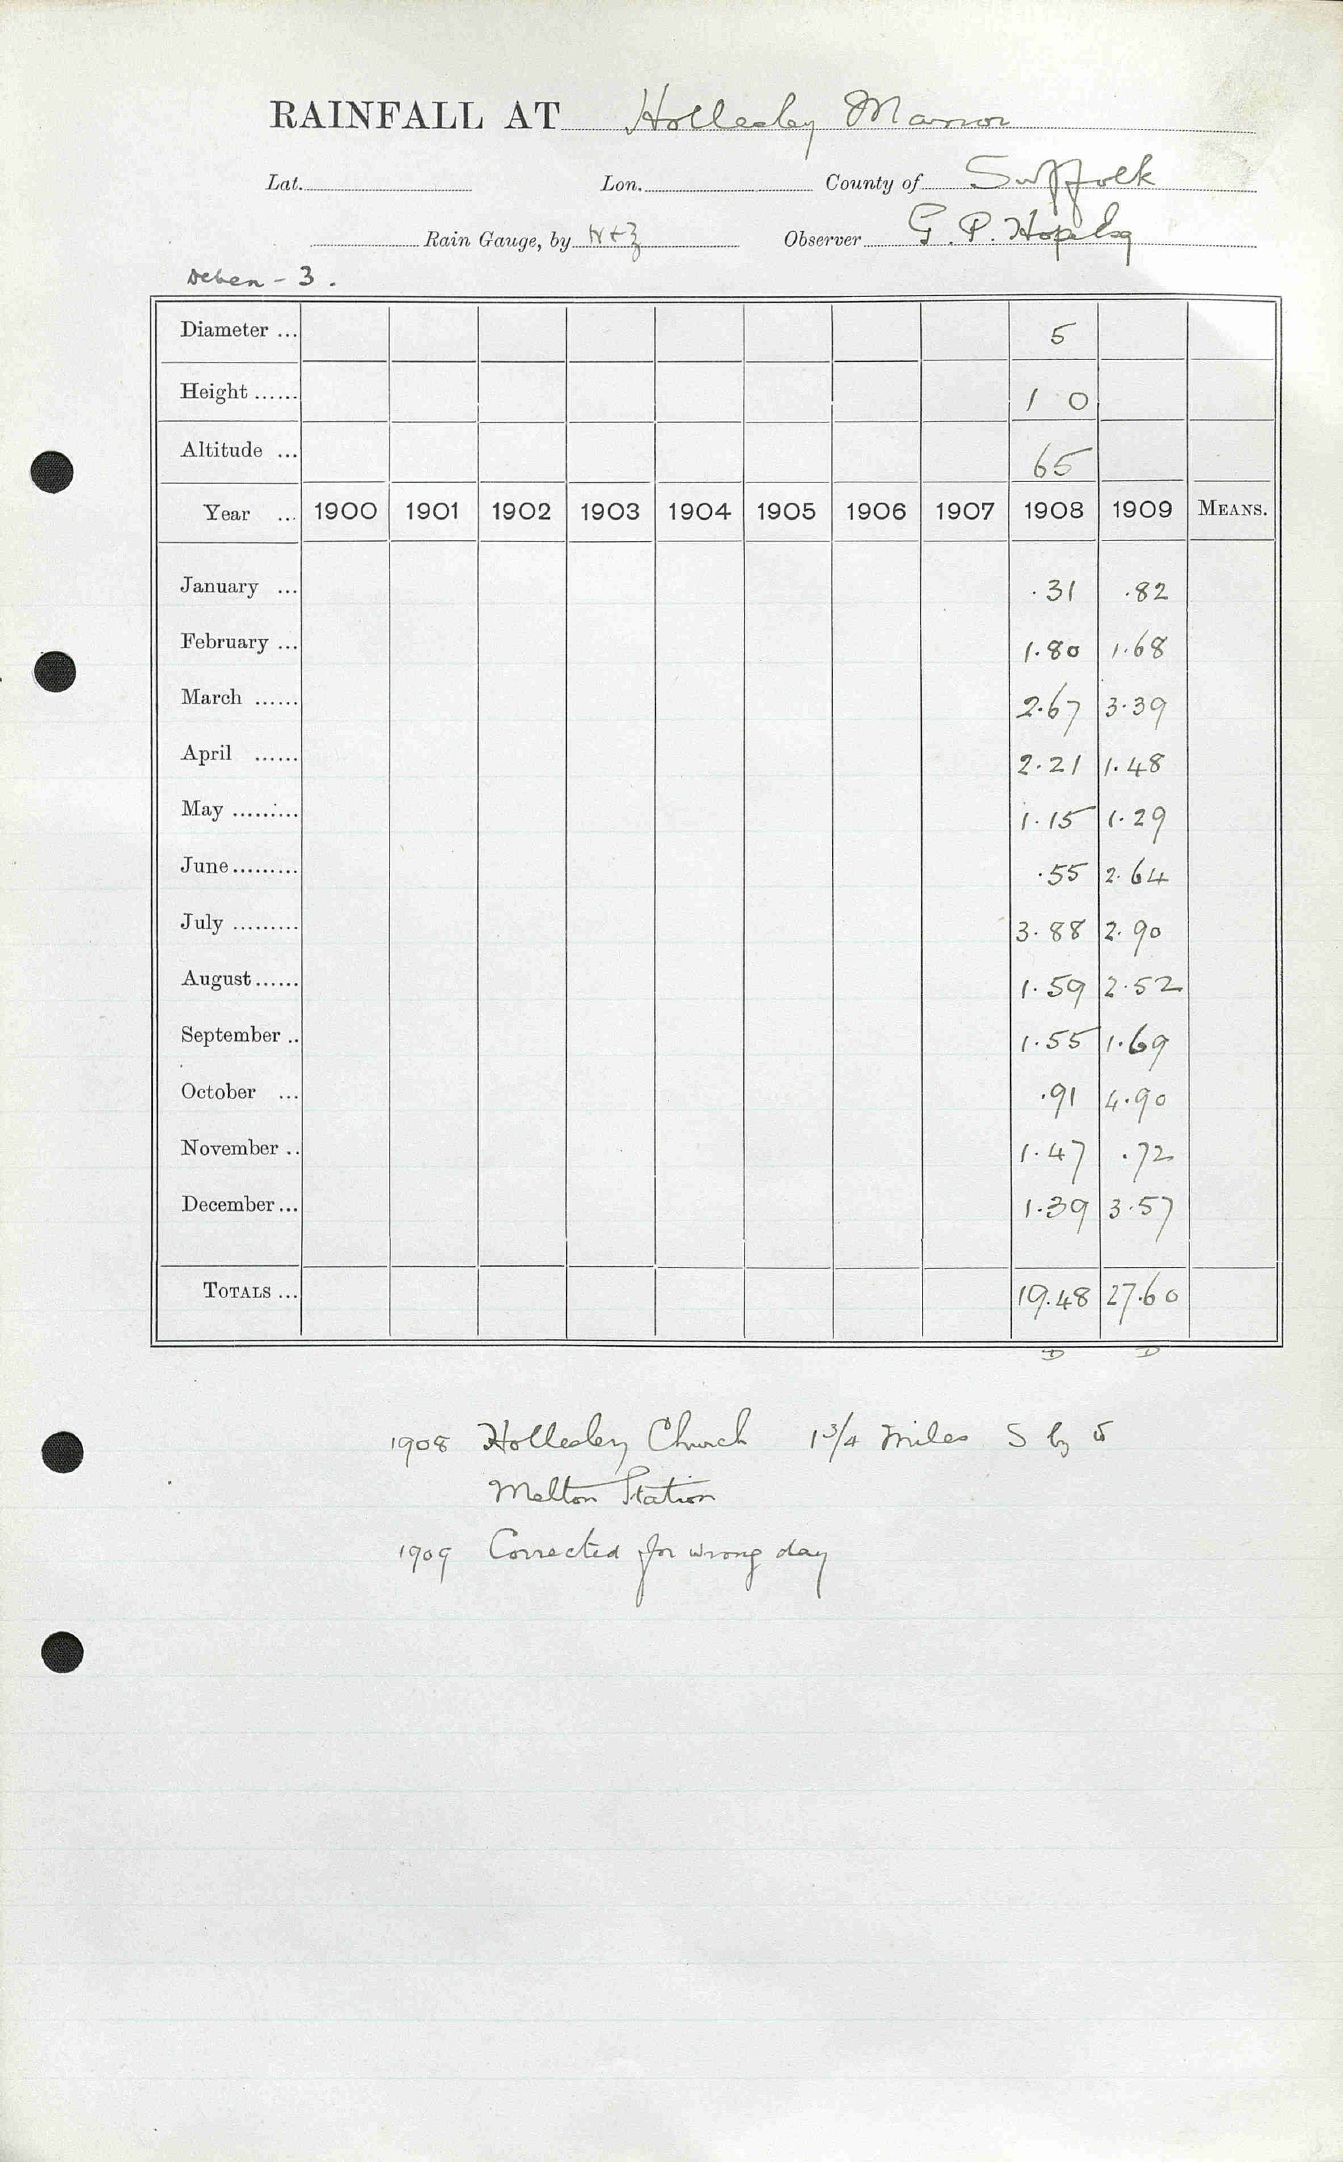 RAINFALL AT Hollesley Manor
Lat. Lon. County of Suffolk
Rain Gauge, by N+Z Observer G. P. Hope Esq
Deben - 3.
Diameter ... 5
Height ...... 1 0
Altitude ... 65
Year ... 1900 1901 1902 1903 1904 1905 1906 1907 1908 1909 MEANS.
January ... .31 .82
February ... 1.80 1.68
March ...... 2.67 3.39
April ...... 2.21 1.48
May ......... 1.15 1.29
June ......... .55 2.64
July ......... 3.88 2.90
August ...... 1.59 2.52
September .. 1.55 1.69
October ... .91 4.90
November .. 1.47 .72
December ... 1.39 3.57
TOTALS ... 19.48 27.60
D D
1908 Hollesley Church 1 3/4 miles S by
Melton Station
1909 Corrected for wrong day